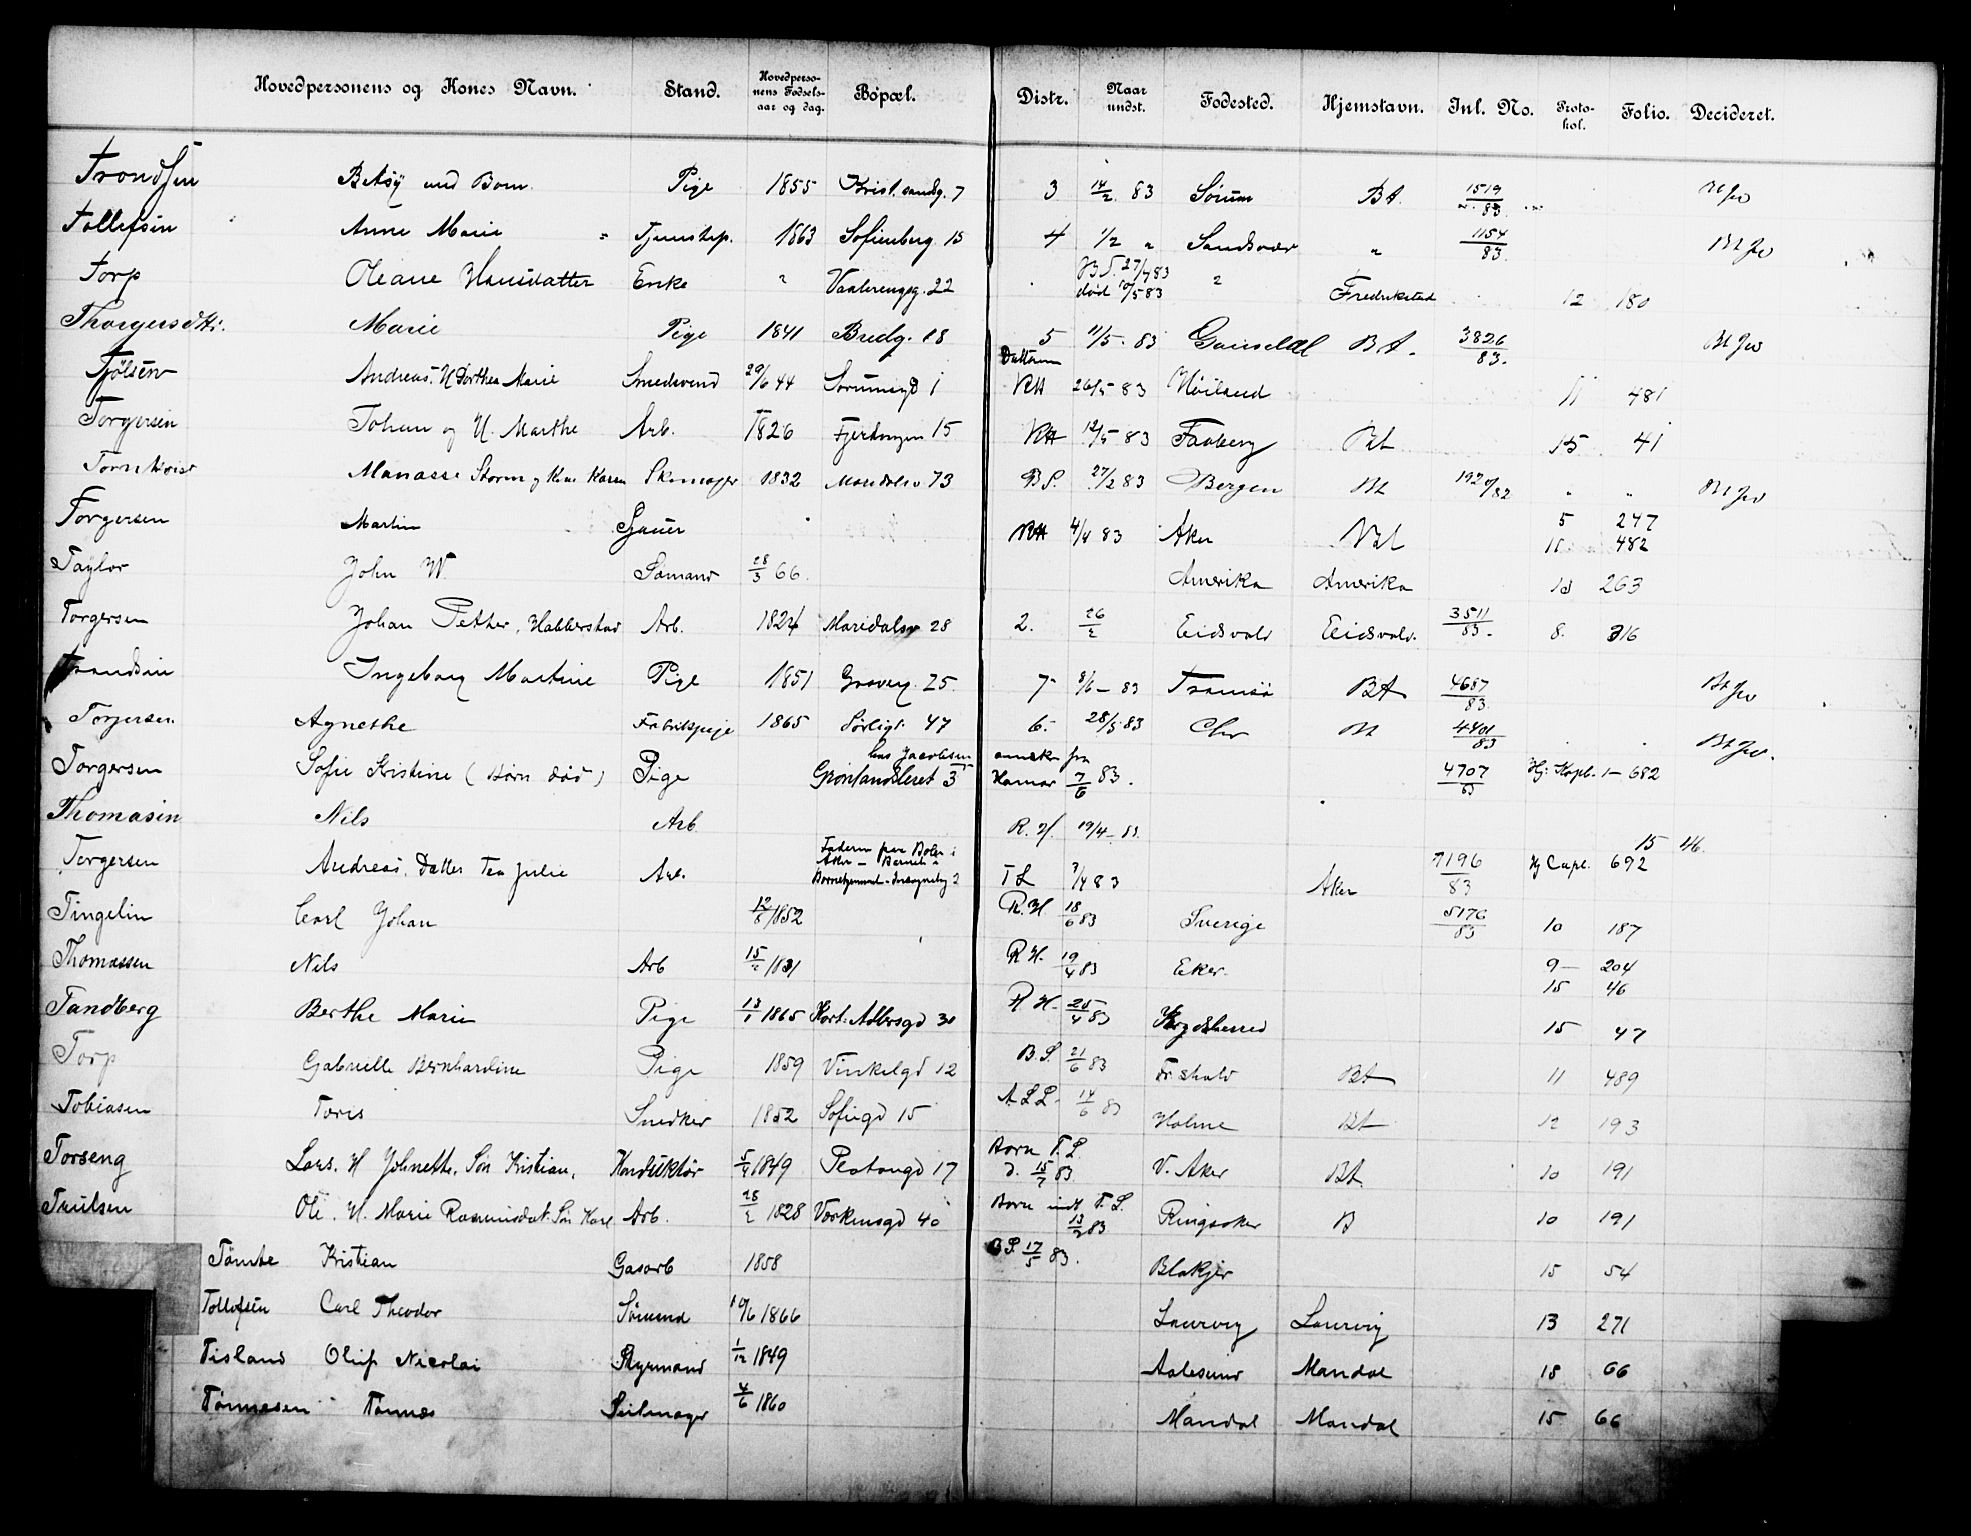 Hovedpersonens og Kones Navn. Stand. Hovedperso-nens Fødsels-aar og dag. Bopæl. Distr. Naar undst. Fødested. Hjemstavn. Inl. No. Proto-kol. Folio. Decideret.
Trondsen Betsy und Barn. Pige 1855 Krist.sandg. 7 3 14/2 83 Sørum Bt. 1519/83
Tollefsen Anne Marie " Tjenestep. 1863 Sofienberg. 15 4 1/2 " Sandsvær " 1154/83
Torp Oleane Hansdatter Enke " Vaalerengg. 22 B S. 27/4 83 død 10/5 83 " Fredrikstad 12 180
Thorgersdtt. Marie Pige 1841 Bredg. 18 5 11/5 83 Gausdal Bt. 3826/83
Tjølsen Andreas, H Dorthea Marie Smedsvend 29/6 44 Sørumsgd 1 Datteren RH 26/5 83 Høiland 11 481
Torgersen Johan og H. Marthe Arb. 1826 Fjerdingen 15 RH 12/5 83 Faaberg Bt 15 41
Tornkvist Manasse Storm og Kone Karen Skomager 1832 Maridalsv 73 B S. 27/2 83 Bergen Bt 1920/82 " "
Torgersen Martin Sjauer RH 4/4 83 Aker Bt 5 247
10 482
Taylor John W. Sømand 28/3 66. Amerika Amerika 13 263
Torgersen Johan Pether, Habberstad Arb. 1824 Maridalsv 28 2. 26/2 Eidsvold Eidsvold. 3511/83 8. 316
Trondsen Ingeborg Martine Pige 1851 Graverg. 25. 7 8/6 83 Tromsø Bt 4687/83
Torgersen Agnethe Fabrikspige 1865 Sørligt. 47 6. 28/5 83 Chr Bt 4401/83
Torgersen Sofie Kristine (Børn død) Pige hos Jacobsen Grønlandsleret 3 ønsker fra Hamar 7/6 83. 4707/83 Hj. Kopb. 1 - 682
Thomasen Nils Arb R. H. 19/4 83 15 46.
Torgersen Andreas, Datter Tea Julie Arb. Faderen paa Boler i Aker - Barnet i Børnehjemmet T L 3/4 83 Aker 7196/83 Hj Copi. 692
Tingelin Carl Johan 12/8 1852 R. H. 18/6 83 Sverige 5176/83 10 187
Thomassen Nils Arb 15/2 1831 R H. 19/4 83 Eker. 9 - 204
15 46
Tandberg Berthe Marie Pige 13/1 1865 Kort. Adlersgd 30 R H. 25/4 83 Krydsherred 15 47
Torp Gabrielle Bernhardine Pige 1859 Vinkelgd 12 B. S. 21/6 83 Fr.shald Bt 11 489
Tobiasen Toris Snedker 1852 Sofiegd 15 A L L. 14/6 83 Holme Bt 12 193
Torseng Lars. H Johnette, Søn Kristian, Konduktør 5/4 1849 Plotongd 17 Barn T. L. d. 15/7 83 V. Aker Bt 10 191
Trulsen Ole. H. Marie Rasmusdat. Søn Karl Arb. 28/2 1828 Værkensgd 40 Barn indt T. L. 13/2 83 Ringsaker B 10 191
Tømte Kristian Gasarb 1858 B S. 17/5 83. Blakjer 15 54
Tollefsen Carl Theodor Sømand 10/6 1866 Laurvig Laurvig 13 271
Tisland Oluf Nicolai Styrmand 1/12 1849 Aalesund Mandal 15 66
Tønnesen Tønnes Seilmager 4/6 1860 Mandal Mandal 15 66